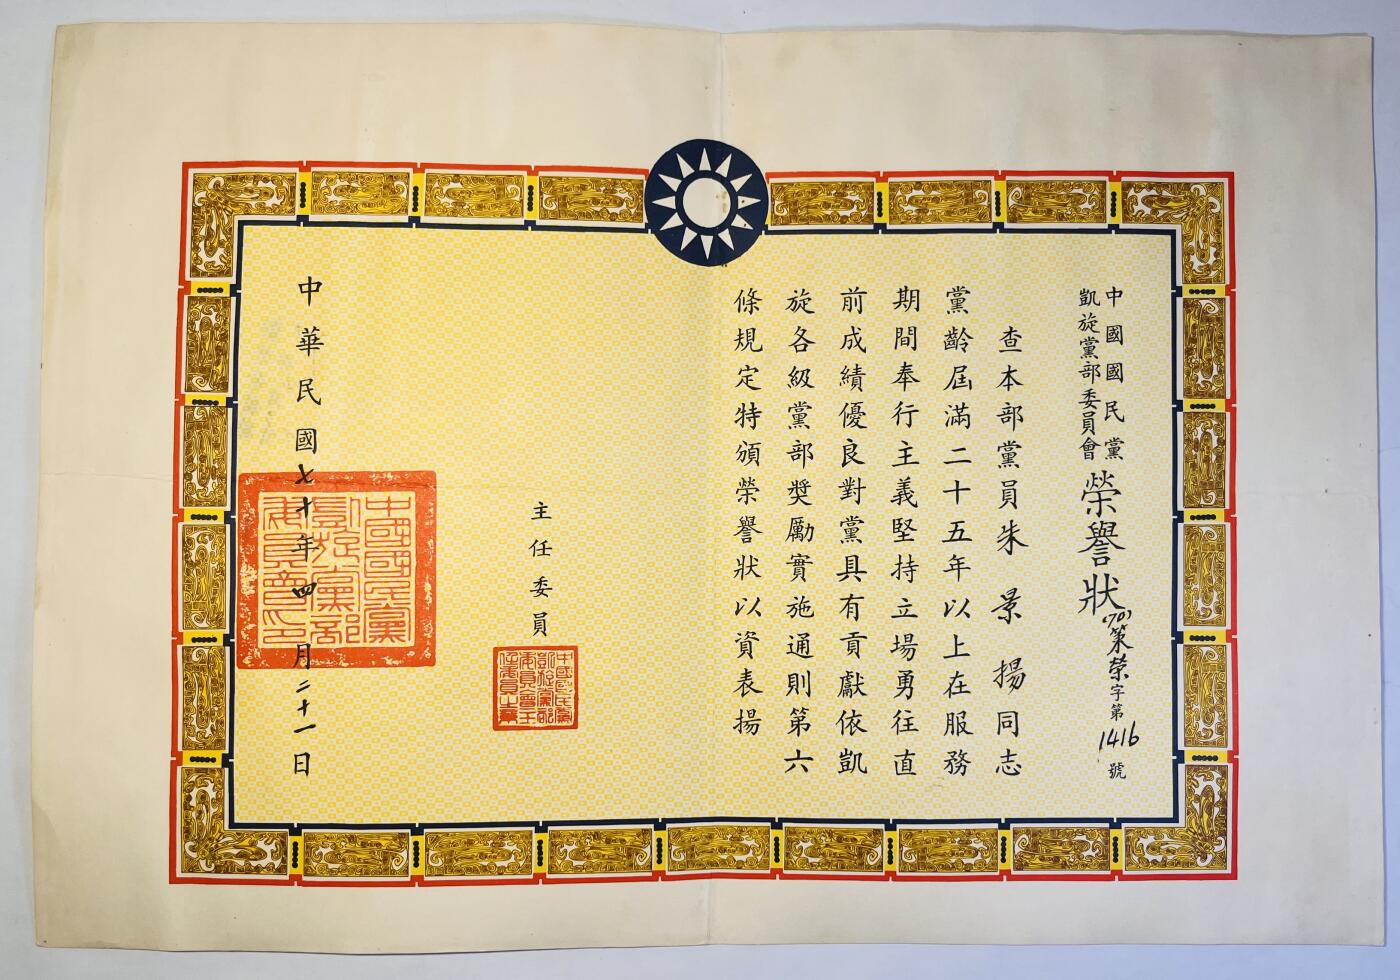 中國國民黨
凱旋黨部委員會
榮譽狀
(70)策榮字第1416號
查本部黨員朱景揚同志
黨齡屆滿二十五年以上在服務
期間奉行主義堅持立場勇往直
前成績優良對黨具有貢獻依凱
旋各級黨部奬勵實施通則第六
條規定特頒榮譽狀以資表揚
主任委員
中國國民黨
凱旋黨部
委員會主
任委員之章
中華民國七十年四月二十一日
中國國民黨
凱旋黨部
委員會印